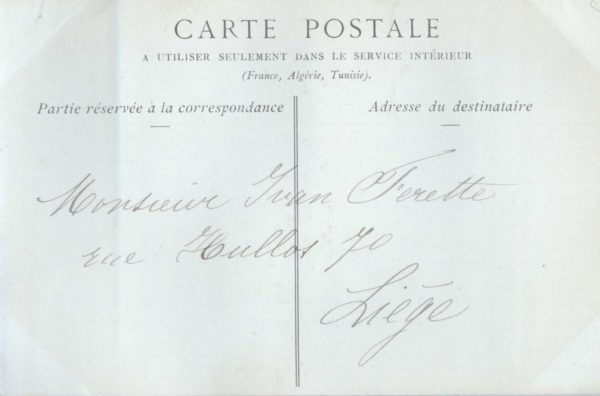 CARTE POSTALE
A UTILISER SEULEMENT DANS LE SERVICE INTÉRIEUR
(France, Algérie, Tunisie).
Partie réservée à la correspondance
Adresse du destinataire
Monsieur Ivan Ferette
rue Hullos 70
Liége